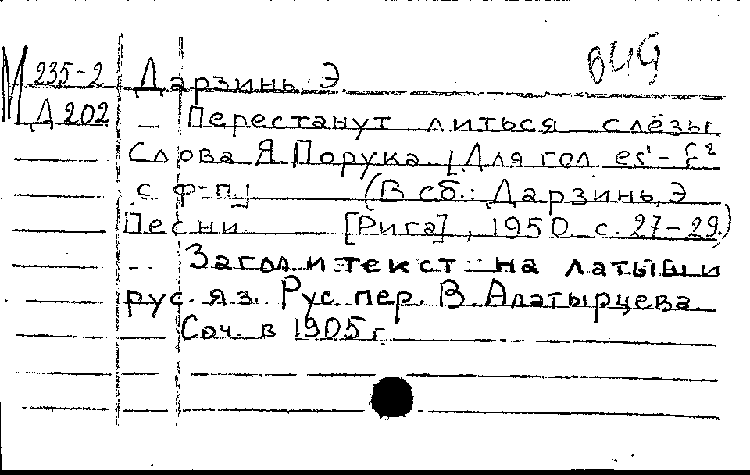 М 235-2 Дарзинь Э
Д 202 Перестанут литься слёзы
Слова Я Порука. [Для гол es¹-f²
с ф-п.] (В сб.: Дарзинь Э
Песни [Рига], 1950 с. 27-29)
Загол и текст на латыш и
рус. яз. Рус. пер. В. Алатырцева
Соч. в 1905 г